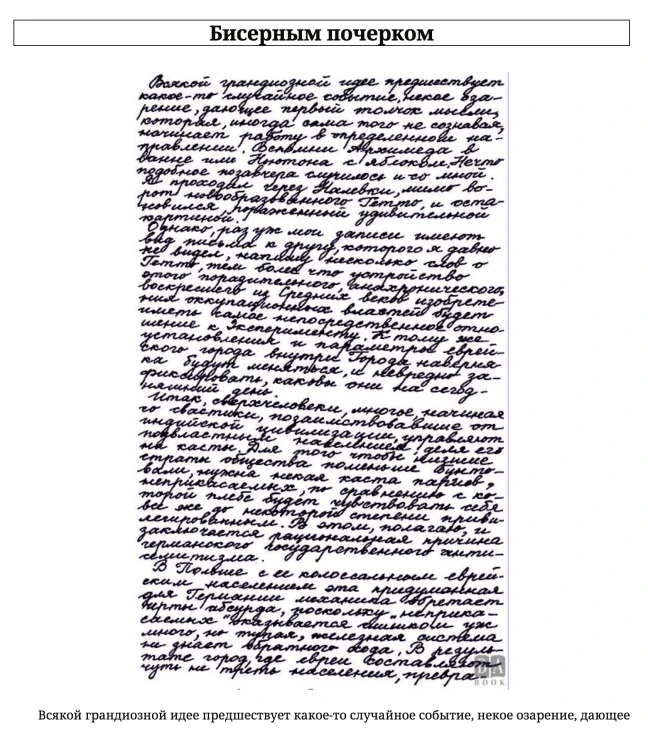 Бисерным почерком
Всякой грандиозной идее предшествует
какое-то случайное событие, некое оза-
рение, дающее первый толчок мысли,
которая, иногда сама того не сознавая,
начинает работу в определенном на-
правлении. Вспомни Архимеда в
ванне или Ньютона с яблоком. Нечто
подобное позавчера случилось и со мной.
Я проходил через Налевки, мимо во-
рот новообразованного Гетто, и оста-
новился, пораженный удивительной
картиной.
Однако, раз уж мои записи имеют
вид письма к другу, которого я давно
не видел, напишу несколько слов о
Гетто, тем более что устройство
этого поразительного, анахронического,
воскресшего из Средних веков изобрете-
ния оккупационных властей будет
иметь самое непосредственное отно-
шение к Эксперименту. К тому же
установления и параметры еврей-
ского города внутри Города наверня-
ка будут меняться, и невредно за-
фиксировать, каковы они на сегод-
няшний день.
Итак, сверхчеловеки, многое, начиная
со свастики, позаимствовавшие от
индийской цивилизации, управляют
подвластным населением, деля его
на касты. Для того чтобы низшие
страты общества поменьше бунто-
вали, нужна некая каста париев,
неприкасаемых, по сравнению с ко-
торой плебс будет чувствовать себя
все же до некоторой степени приви-
легированным. В этом, полагаю, и
заключается рациональная причина
германского государственного анти-
семитизма.
В Польше с ее колоссальным еврей-
ским населением эта придуманная
для Германии механика обретает
черты абсурда, поскольку "неприка-
саемых" оказывается слишком уж
много, но тупая, железная система
не знает обратного хода. В резуль-
тате город, где евреи составляют
чуть не треть населения, превра-
BOOK
Всякой грандиозной идее предшествует какое-то случайное событие, некое озарение, дающее